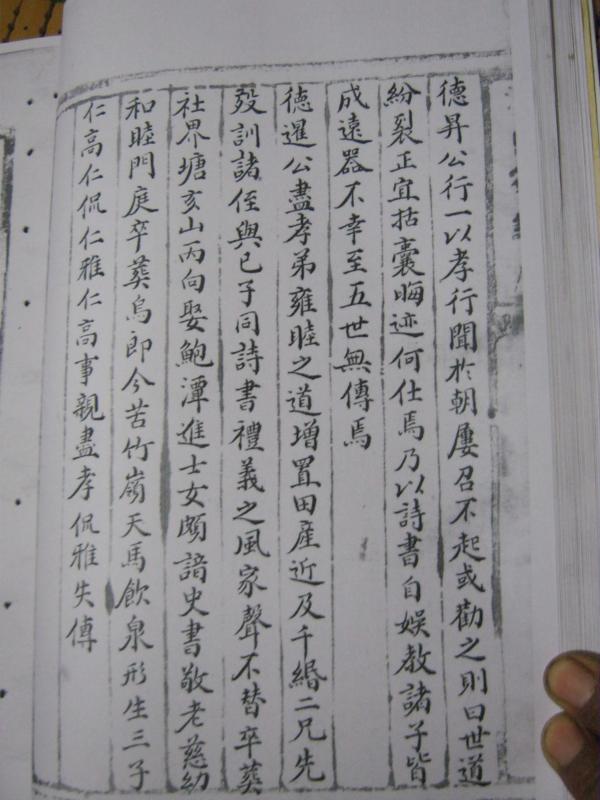 德昇公行一以孝行聞於朝屢召不起或勸之則曰世道
紛裂正宜括囊晦迹何仕焉乃以詩書自娛教諸子皆
成遠器不幸至五世無傳焉
德暹公盡孝弟雍睦之道增置田産近及千緡二兄先
歿訓諸侄與已子同詩書禮義之風家聲不替卒葬
社界塘亥山丙向娶鮑潭進士女頗諳史書敬老慈幼
和睦門庭卒葬烏郎今苦竹嶺天馬飲泉形生三子
仁高仁侃仁雅仁高事親盡孝侃雅失傳